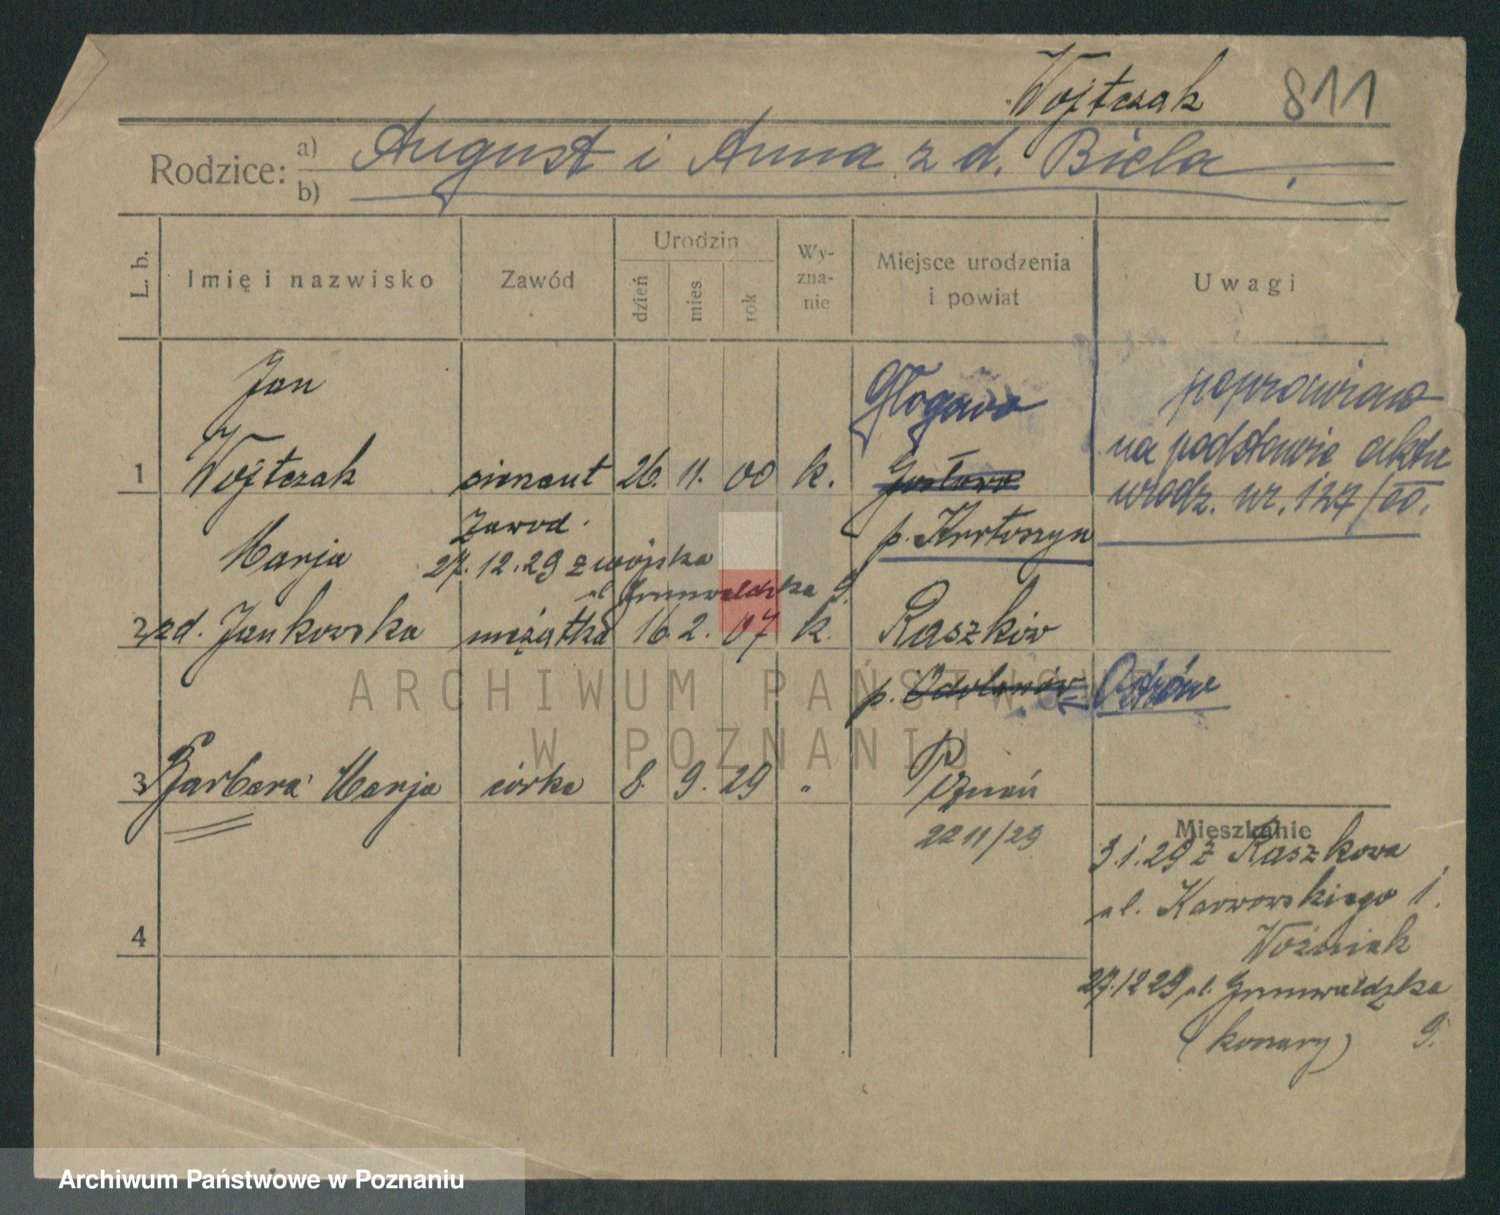 Wojtczak 811
Rodzice: a) August i Anna z d. Biela.
b)
L. b. Imię i nazwisko Zawód Urodzin Wy-zna-nie Miejsce urodzenia i powiat Uwagi
dzień mies rok
Jan Głogowa poprawiono
1 Wojtczak 26. 11. 00 k. na podstawie aktu
zawod. p. Krotoszyn urodz. nr. 127/00.
Marja 27.12.29 z wojska
ul. Grunwaldzka 9.
2 zd. Jankowska mężatka 16. 2. 07 k. Raszków
p. Odolanów Ostrów
3 Barbara Marja córka 8. 9. 29 " Poznań
22 11/29
Mieszkanie
3.1.29 z Raszkowa
ul. Karwowskiego 1.
Woźniak
4
27.12 29 ul. Grunwaldzka
(konary) 9.
ARCHIWUM PAŃSTWOWE
W POZNANIU
Archiwum Państwowe w Poznaniu